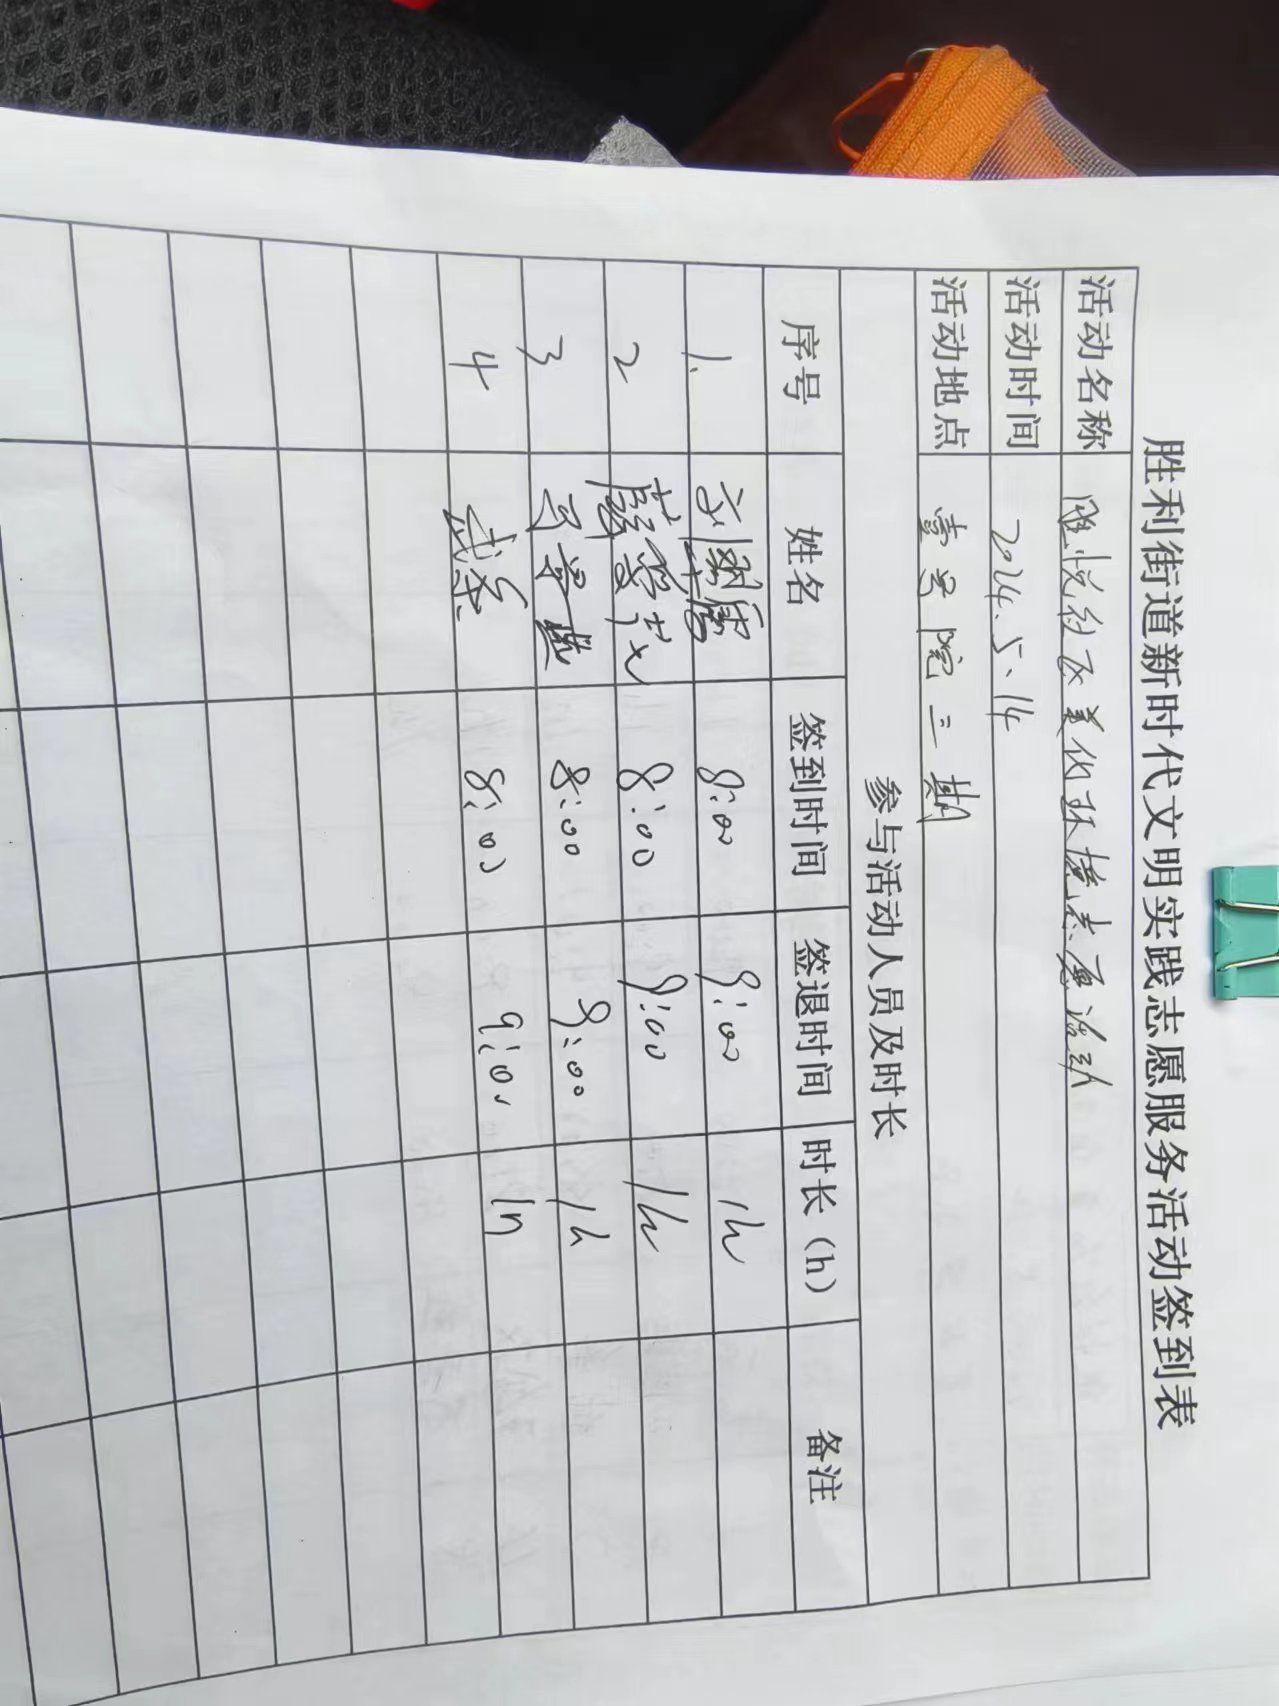 胜利街道新时代文明实践志愿服务活动签到表
活动名称 悦社区美化环境志愿活动
活动时间 2024.5.14
活动地点 壹号院三期
参与活动人员及时长
序号 姓名 签到时间 签退时间 时长（h） 备注
1. 刘 8:00 9:00 1h
2 薛 8:00 9:00 1h
3 8:00 9:00 1h
4 武 8:00 9:00 1h